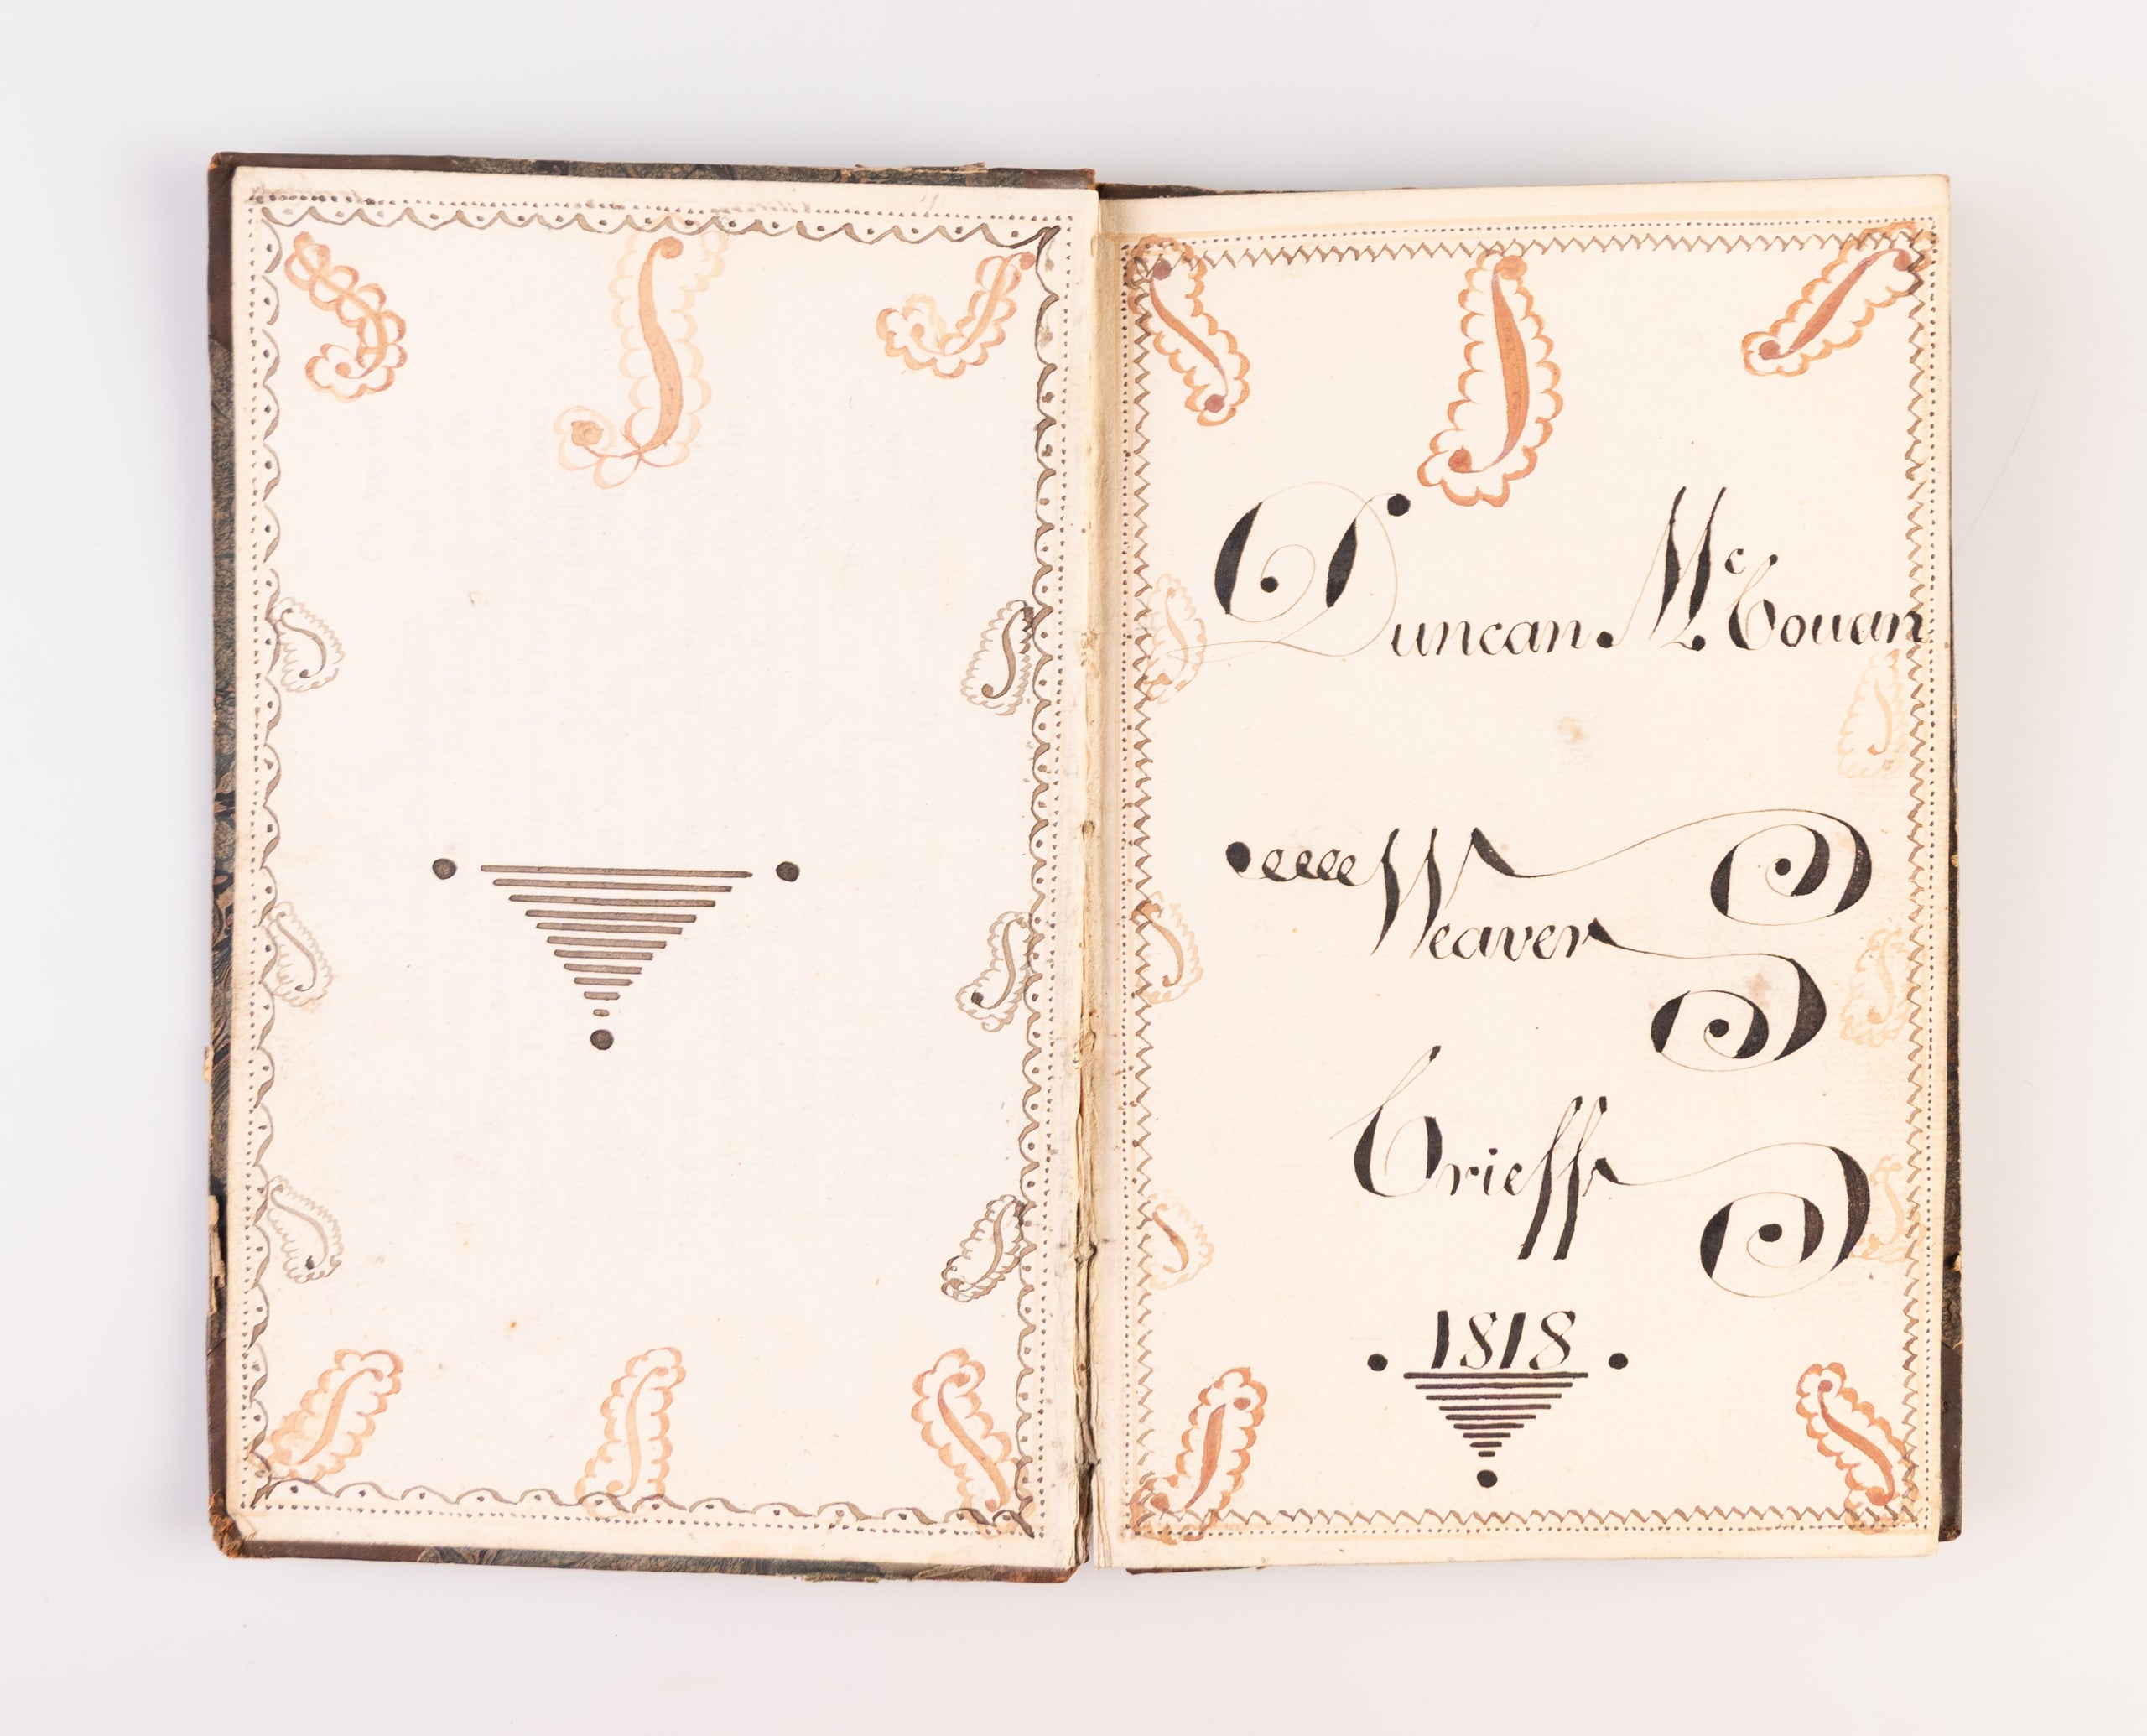 Duncan Mc Couan
Weaver
Crieff
1818